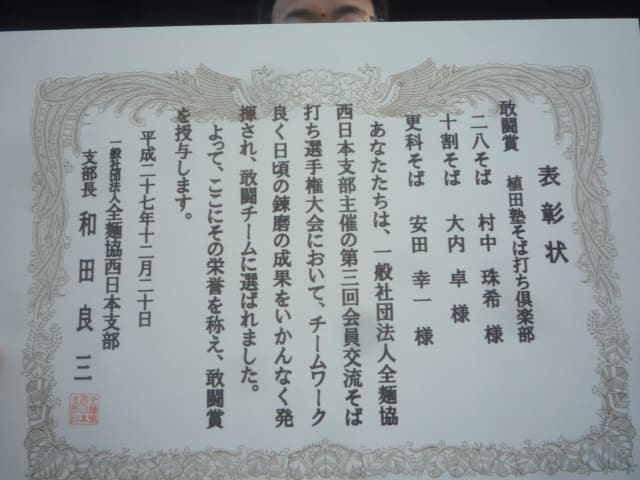 表彰状
敢闘賞　植田塾そば打ち倶楽部
二八そば　村中　珠希　様
十割そば　大内　卓　様
更科そば　安田　幸一　様
あなたたちは、一般社団法人全麺協
西日本支部主催の第三回会員交流そば
打ち選手権大会において、チームワーク
良く日頃の錬磨の成果をいかんなく発
揮され、敢闘チームに選ばれました。
よって、ここにその栄誉を称え、敢闘賞
を授与します。
平成二十七年十二月二十日
一般社団法人全麺協西日本支部
支部長　和田良三